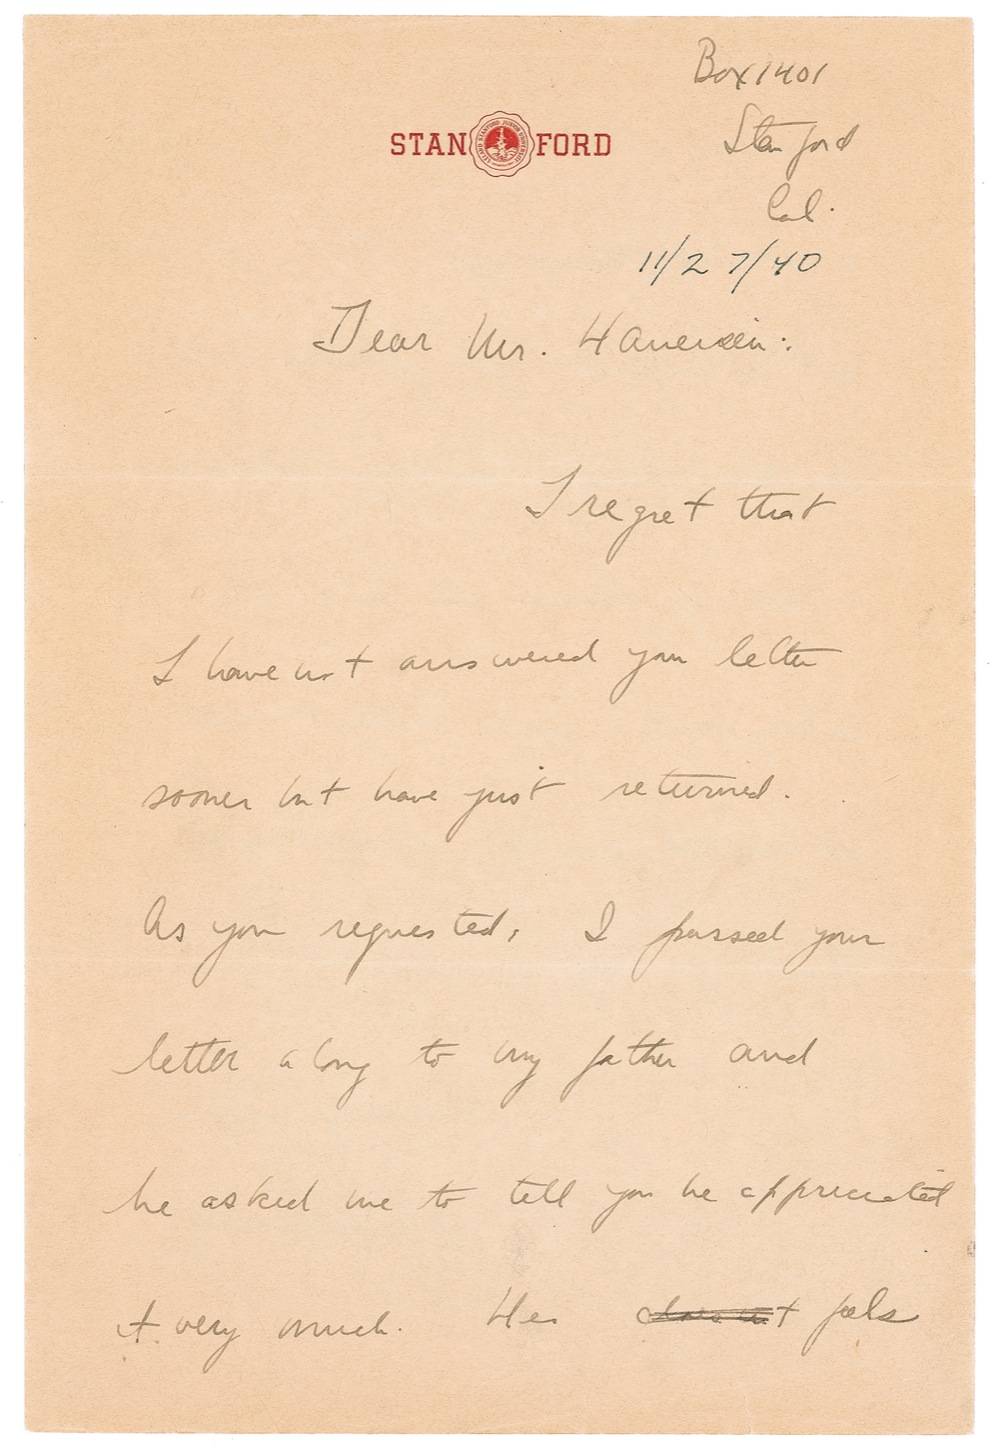 Box 1401
STANFORD
LELAND STANFORD JUNIOR UNIVERSITY
Stanford
Cal.
11/27/40
Dear Mr.
I regret that
I have not answered your letter
sooner but have just returned.
As you requested, I passed your
letter along to my father and
he asked me to tell you he appreciated
it very much. He feels